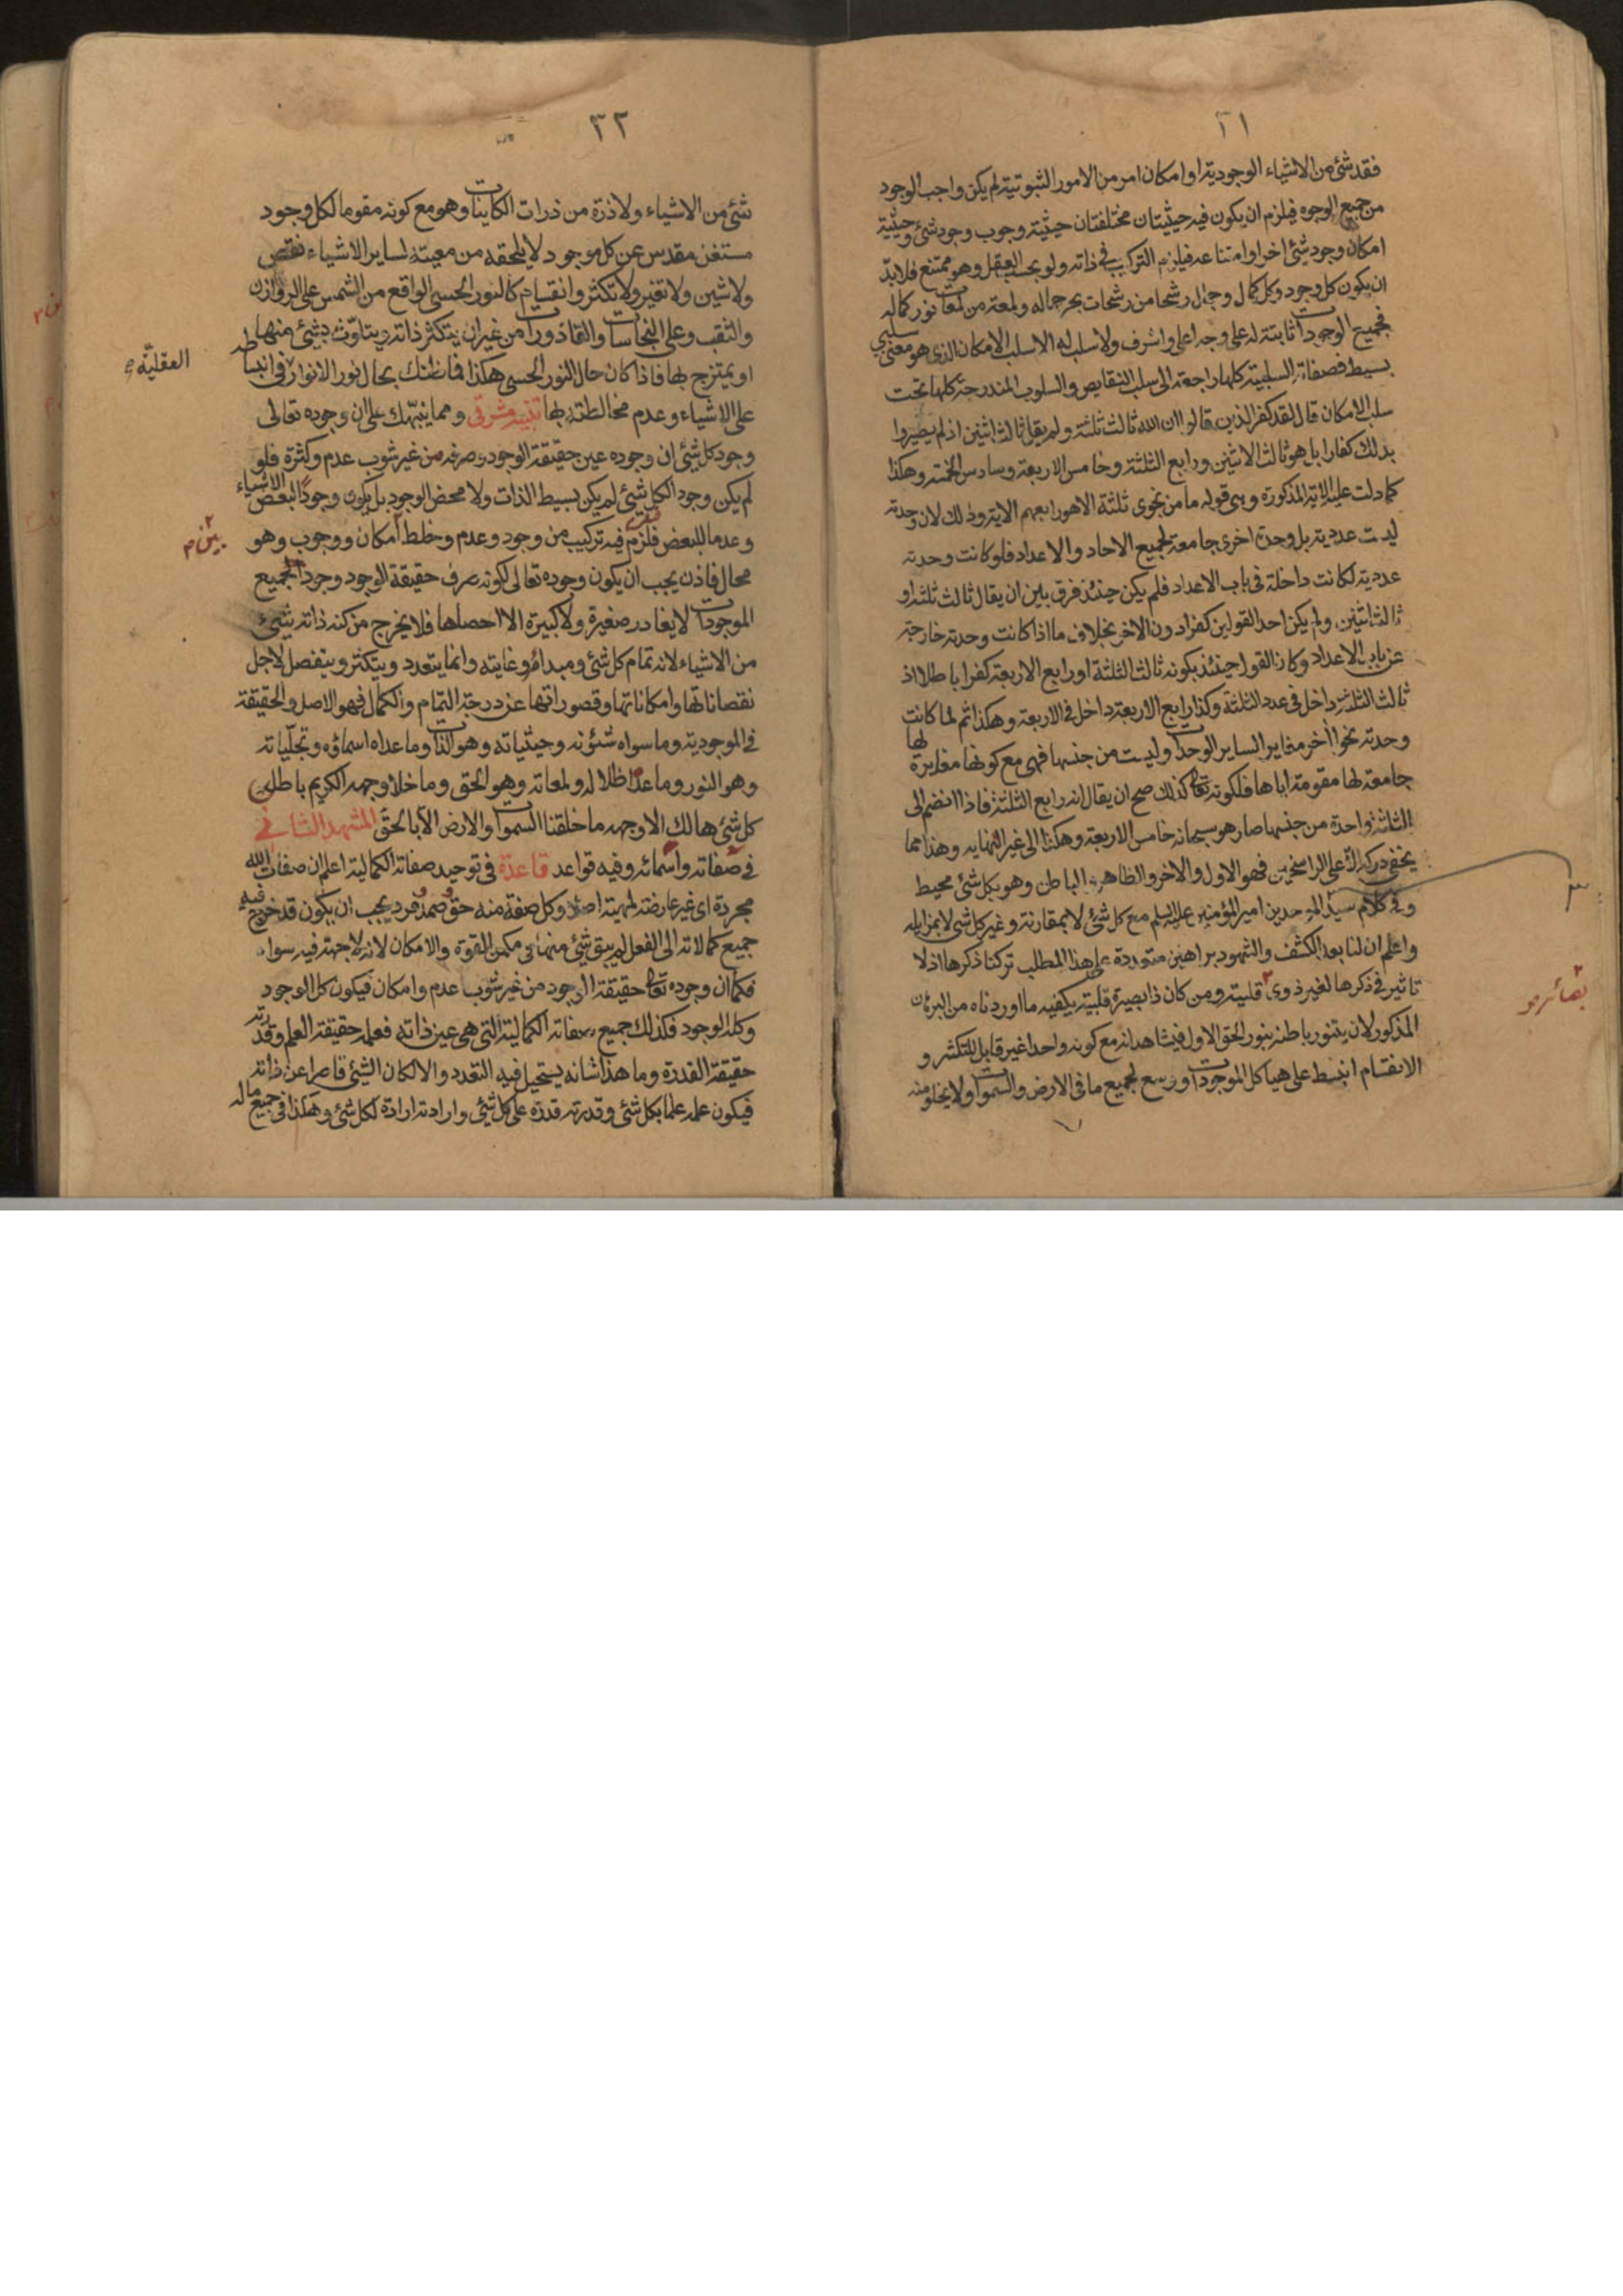 ٣١
فقد شئ من الاشياء الوجودية او امكان امر من الامور الثبوتية لم يكن واجب الوجود
من جميع الوجوه فيلزم ان يكون فيه حيثيتان مختلفتان حيثية وجوب وجود شئ وحيثية
امكان وجود شئ اخر او امتناعه فيلزم التركيب في ذاته ولو بحسب العقل وهو ممتنع فلا بدّ
ان يكون كل وجود وكل كمال وجمال رشحا من رشحات بحر جماله ولمعة من لمعات نور كماله
فجميع الوجودات ثابتة له على وجه اعلى واشرف ولا سلب له الا سلب الامكان الذى هو معنى سلبي
بسيط فصفاته السلبية كلها راجعة الى سلب النقايص والسلوب المندرجة كلها تحت
سلب الامكان قال لقد كفر الذين قالوا ان الله ثالث ثلثة ولم يقل ثالث اثنين اذ لم يصيروا
بذلك كفارا بل هو ثالث الاثنين ورابع الثلثة وخامس الاربعة وسادس الخمسة وهكذا
كما دلت عليه الاية المذكورة وهى قوله ما من نجوى ثلثة الا هو رابعهم الاية وذلك لان وحدته
ليست عددية بل وحدة اخرى جامعة لجميع الاحاد والاعداد فلو كانت وحدته
عددية لكانت داخلة في باب الاعداد فلم يكن حينئذ فرق بين ان يقال ثالث ثلثة او
ثالث اثنين ولم يكن احد القولين كفرا دون الاخر بخلاف ما اذا كانت وحدته خارجة
عن باب الاعداد وكان القول حينئذ بكونه ثالث الثلثة او رابع الاربعة كفرا باطلا اذ
ثالث الثلثة داخل في عدد الثلثة وكذا رابع الاربعة داخل في الاربعة وهكذا ثم لما كانت
وحدته نحوا اخر مغايرا لساير الوحدات وليست من جنسها فهى مع كونها مغايرة لها
جامعة لها مقومة اياها فلكونه تعالى كذلك صح ان يقال انه رابع الثلثة فاذا انضم الى
الثلثة واحدة من جنسها صار هو سبحانه خامس الاربعة وهكذا الى غير النهاية وهذا مما
يخفى دركه الا على الراسخين فهو الاول والاخر والظاهر والباطن وهو بكل شئ محيط
وفي كلام سيد الموحدين امير المؤمنين عليه السلم مع كل شئ لا بمقارنة وغير كل شئ لا بمزايله
واعلم ان لنا بعد الكشف والشهود براهين متعددة على هذا المطلب تركنا ذكرها اذ لا
تاثير في ذكرها لغير ذوى قلبية ومن كان ذا بصيرة قلبية يكفيه ما اوردناه من البرهان
بصائر
المذكور لان يتنور باطنه بنور الحق الاول فيشاهد انه مع كونه واحدا غير قابل للتكثر و
الانقسام انبسط على هياكل الموجودات ووسع لجميع ما فى الارض والسموات ولا يخلو منه
٣٢
شئ من الاشياء ولا ذرة من ذرات الكاينات وهو مع كونه مقوما لكل وجود
مستغن مقدس عن كل موجود لا يلحقه من معيته لساير الاشياء نقص
ولا شين ولا تغير ولا تكثر وانقسام كالنور الحسى الواقع من الشمس على الروازن
والثقب وعلى النجاسات والقاذورات من غير ان يتكثر ذاته ويتلوّث بشئ منها
او يمتزج بها فاذا كان حال النور الحسى هكذا فما ظنك بحال نور الانوار في انبساطه
العقليّة
على الاشياء وعدم مخالطته بها تنبيه مشرقى ومما ينبّهك على ان وجوده تعالى
وجود كل شئ ان وجوده عين حقيقة الوجود وصرفه من غير شوب عدم وكثرة فلو
لم يكن وجود الكل شئ لم يكن بسيط الذات ولا محض الوجود بل يكون وجودا لبعض الاشياء
وعدما للبعض فلزم فيه تركيب من وجود وعدم وخلط امكان ووجوب وهو
بين
محال فاذن يجب ان يكون وجوده تعالى لكونه صرف حقيقة الوجود وجودا لجميع
الموجودات لا يغادر صغيرة ولا كبيرة الا احصاها فلا يخرج من كنه ذاته شئ
من الاشياء لانه تمام كل شئ ومبداؤه وغايته وانما يتعدد ويتكثر ويتفصل لاجل
نقصاناتها وامكاناتها وقصوراتها عن درجة التمام والكمال فهو الاصل والحقيقة
في الموجودية وما سواه شئونه وحيثياته وهو الذات وما عداه اسماؤه وتجلّياته
وهو النور وما عداه اظلاله ولمعاته وهو الحق وما خلا وجهه الكريم باطل
كل شئ هالك الا وجهه ما خلقنا السموات والارض الا بالحق المشهد الثانى في
في صفاته واسمائه وفيه قواعد قاعدة فى توحيد صفاته الكمالية اعلم ان صفات الله
مجردة اى غير عارضة لمهية اصلا وكل صفة منه حق صمد فرد يجب ان يكون قد خرج فيه
جميع كمالاته الى الفعل لم يبق شئ منها فى مكمن القوة والامكان لانه لا جهة فيه سواه
فكما ان وجوده تعالى حقيقة الوجود من غير شوب عدم وامكان فيكون كل الوجود
وكله الوجود فكذلك جميع صفاته الكمالية التى هى عين ذاته فعلمه حقيقة العلم وقدرته
حقيقة القدرة وما هذا شانه يستحيل فيه التعدد والا لكان الشئ قاصرا عن ذاته
فيكون علمه علما بكل شئ وقدرته قدرة على كل شئ وارادته ارادة لكل شئ وهكذا في جميع ماله